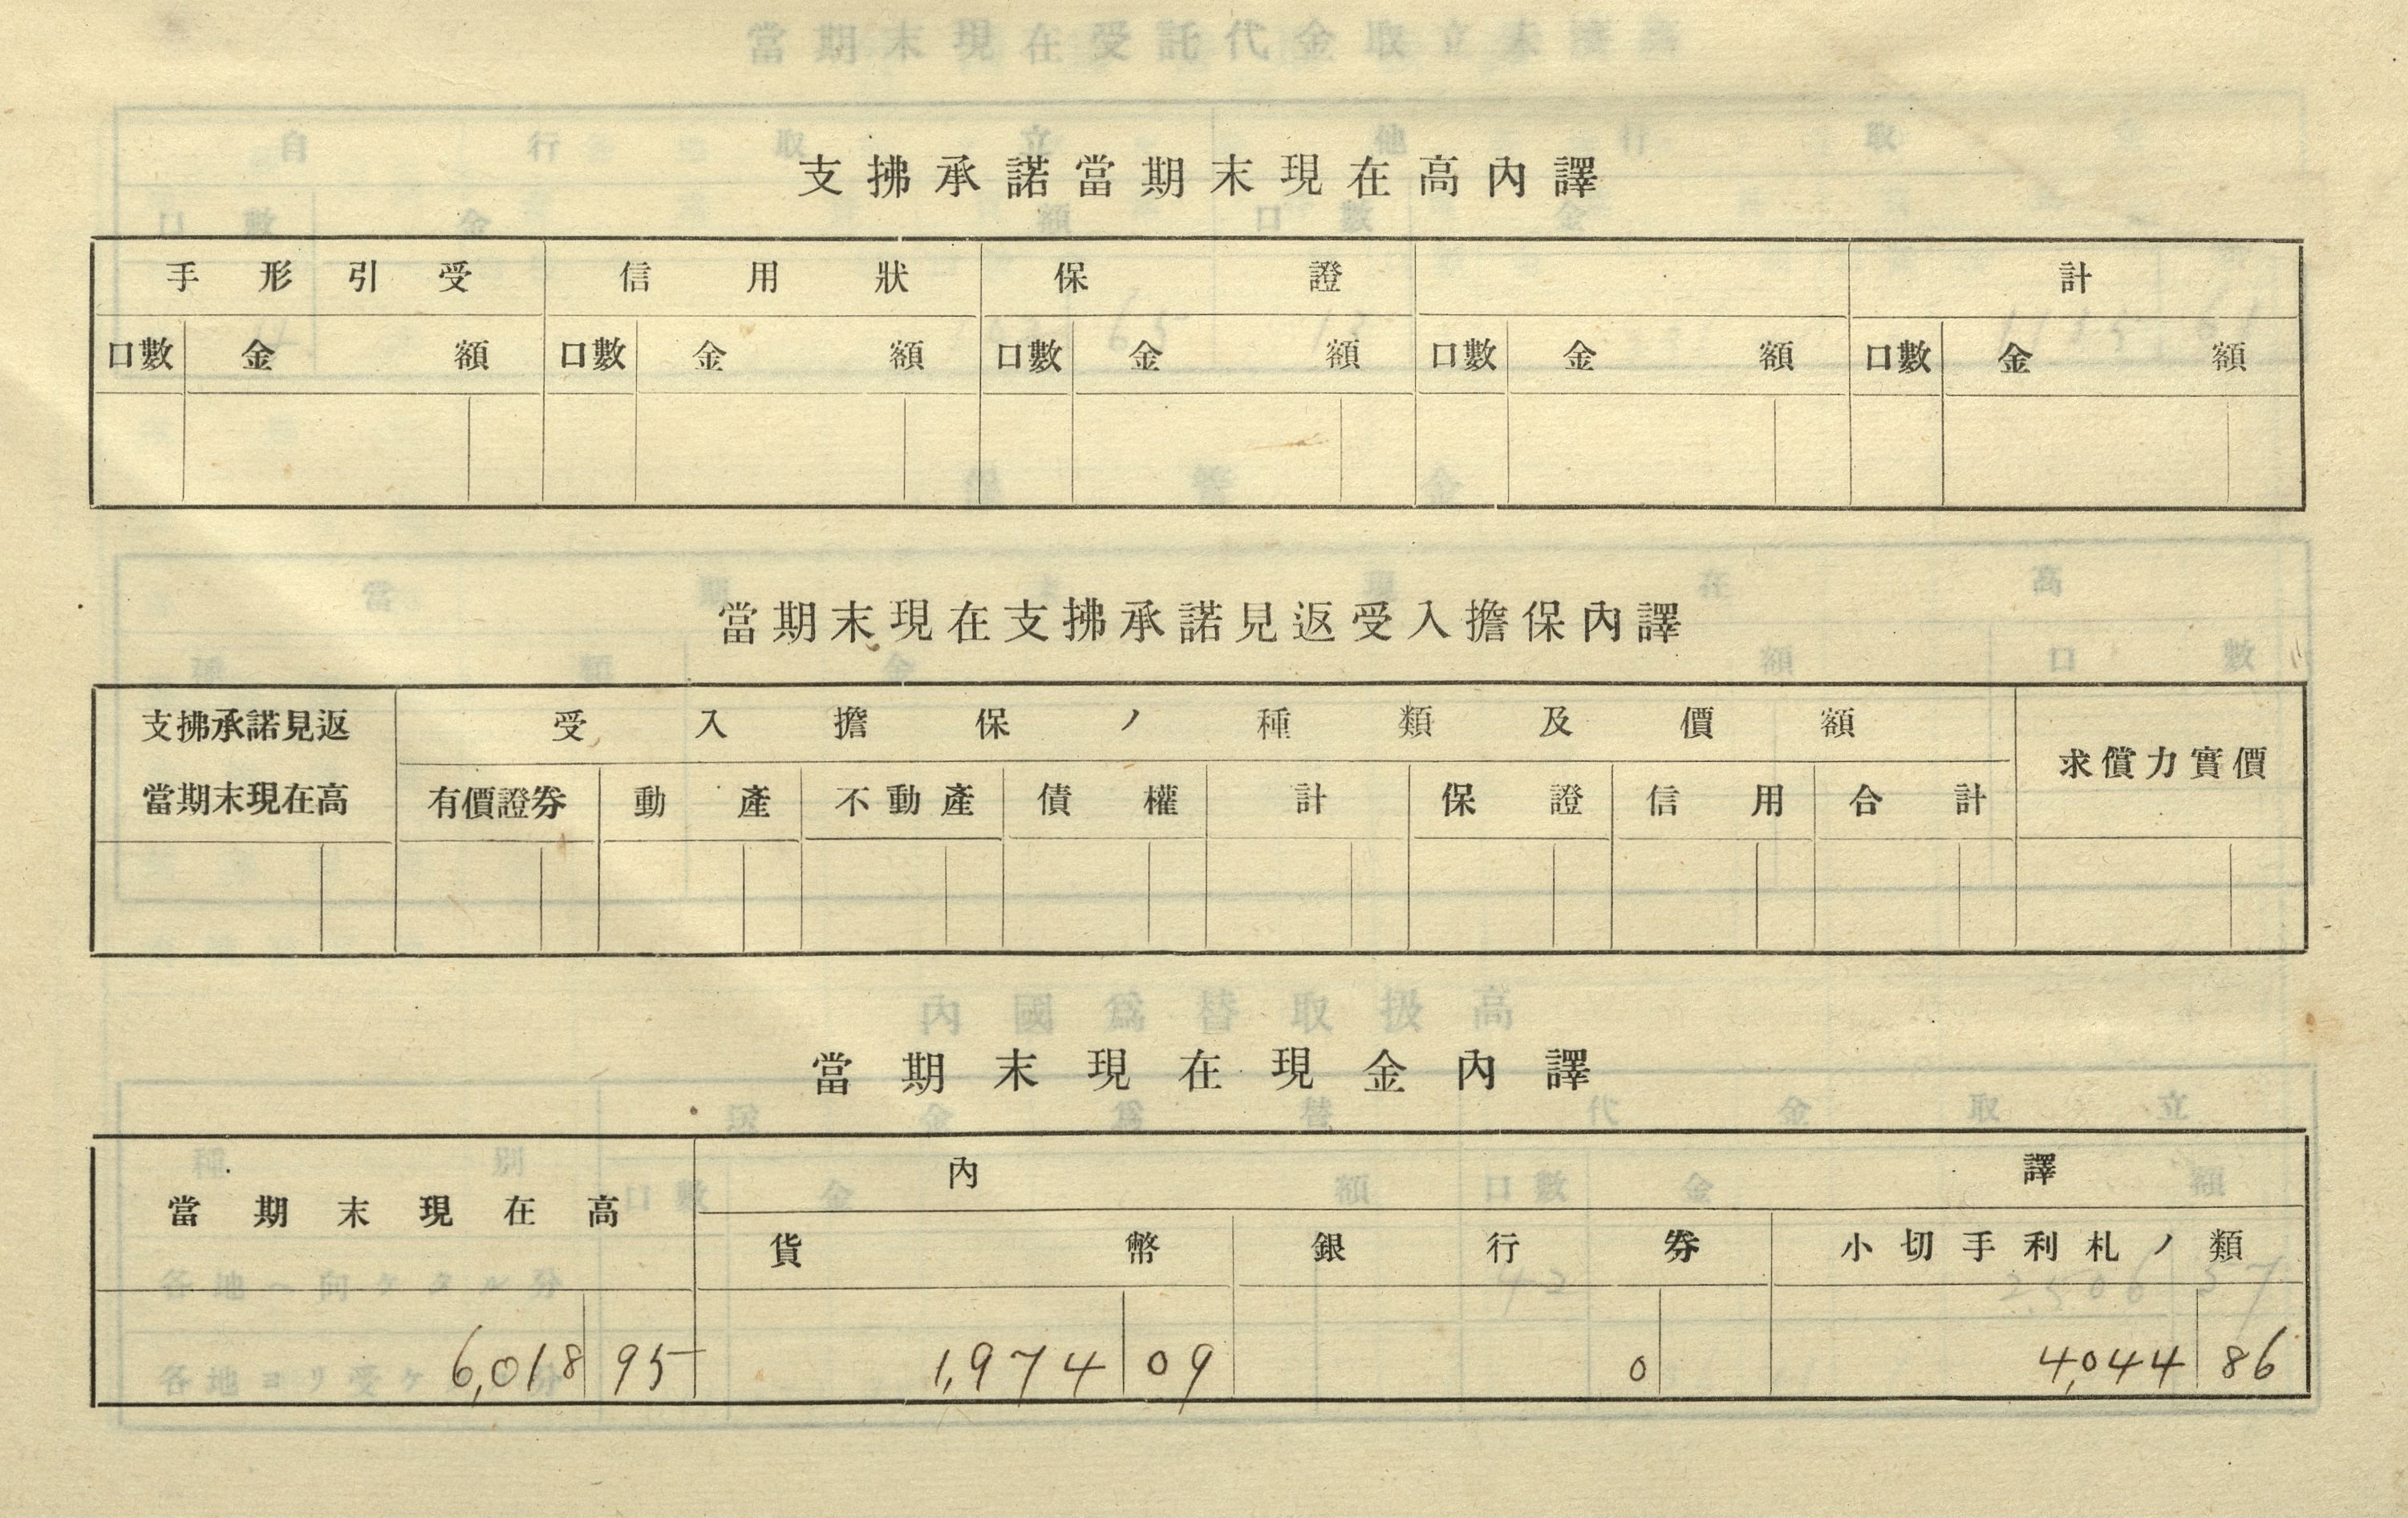 支拂承諾當期末現在高內譯
手形引受 信用狀 保證 計
口數 金額 口數 金額 口數 金額 口數 金額 口數 金額
當期末現在支拂承諾見返受入擔保內譯
支拂承諾見返 受入擔保ノ種類及價額 求償力實價
當期末現在高 有價證券 動產 不動產 債權 計 保證 信用 合計
當期末現在現金內譯
當期末現在高 內譯
貨幣 銀行券 小切手利札ノ類
6,018 95 1,974 09 0 4,044 86